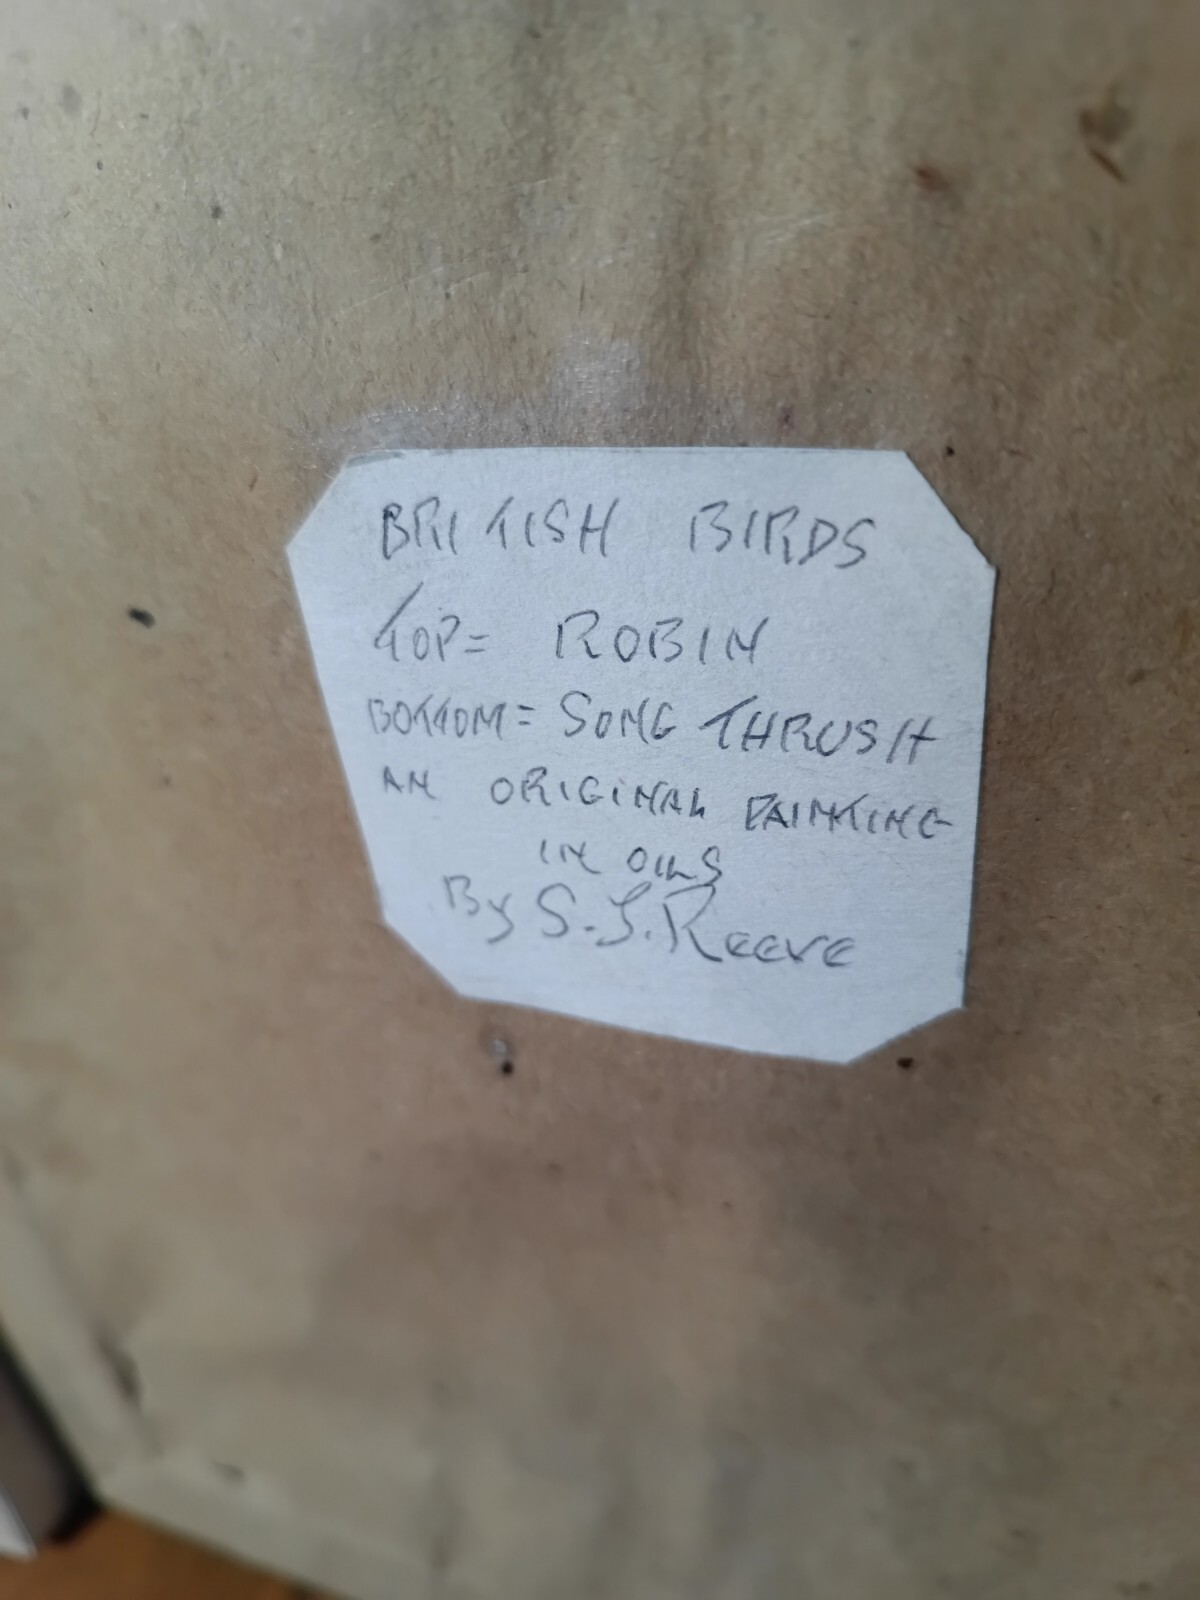 BRITISH BIRDS
TOP= ROBIN
BOTTOM= SONG THRUSH
AN ORIGINAL PAINTING
IN OILS
By S.J.Reeve